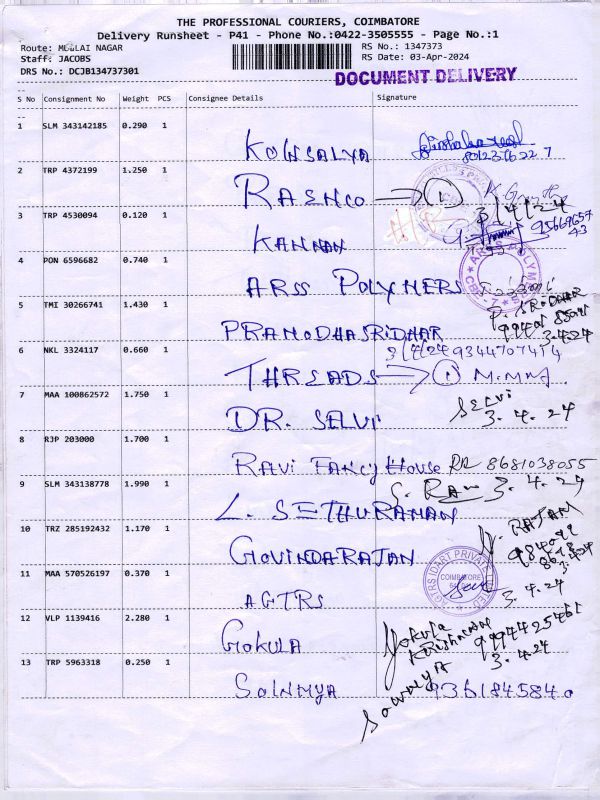 THE PROFESSIONAL COURIERS, COIMBATORE
Delivery Runsheet - P41 - Phone No.:0422-3505555 - Page No.:1
Route: MULLAI NAGAR RS No.: 1347373
Staff: JACOBS RS Date: 03-Apr-2024
DRS No.: DCJB134737301
DOCUMENT DELIVERY
S No Consignment No Weight PCS Consignee Details Signature
1 SLM 343142185 0.290 1
KOWSALYA
2 TRP 4372199 1.250 1
RASHCO → 1
3/4/24
3 TRP 4530094 0.120 1
KANNAN
4 PON 6596682 0.740 1
ARSS POLYMERS
5 TMI 30266741 1.430 1
PRAMODHASRIDHAR P. SRIDHAR
3.4.24
6 NKL 3324117 0.660 1
3/4/24 9344707414
THREADS → 1
7 MAA 100862572 1.750 1
DR. SELVI SELVI
3.4.24
8 RJP 203000 1.700 1
RAVI FANCY HOUSE RR 8681038055
9 SLM 343138778 1.990 1
L. SETHURAMAN 3.4.24
10 TRZ 285192432 1.170 1
GOVINDARAJAN RAJAM
3.4.24
11 MAA 570526197 0.370 1
AGTRS COIMBATORE 3.4.24
12 VLP 1139416 2.280 1
GOKULA Gokula Krishnan 9994425461
3.4.24
13 TRP 5963318 0.250 1
SOWMYA Sowmya 9361845840